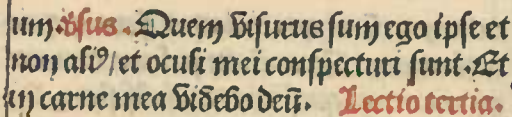 um. v̄sus. Quem visurus sum ego ipse et
non aliꝰ/ et oculi mei conspecturi sunt. Et
in carne mea videbo deū. Lectio tertia.